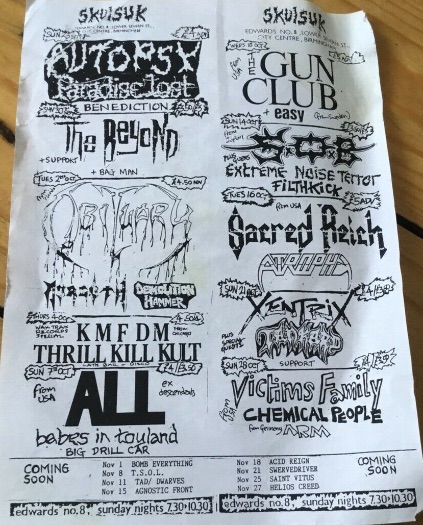 SKUISUK
EDWARDS NO.8, LOWER SEVERN ST.,
CITY CENTRE, BIRMINGHAM
AUTOPSY
Paradise Lost
BENEDICTION
The Beyond
+ SUPPORT
+ BAG MAN
TUES 2ND OCT
£4.50
OBITUARY
DEMOLITION
HAMMER
KMFDM
THRILL KILL KULT
SUN 7th OCT
£4/3.50
from
USA
ALL
ex
descendents
babes in toyland
BIG DRILL CAR
SKUISUK
EDWARDS NO.8, LOWER SEVERN ST.,
CITY CENTRE, BIRMINGHAM
THE
GUN
CLUB
easy
(from Sweden)
SUN 14 OCT
S.O.B
EXTREME NOISE TERROR
FILTHKICK
TUES 16 OCT
from USA
Sacred Reich
ATROPHY
SUN 21 OCT
XENTRIX
PLUS
SPECIAL
GUESTS
TANKARD
SUN 28 OCT
SUPPORT
Victims Family
CHEMICAL PEOPLE
from Germany
COMING
SOON
Nov 1 BOMB EVERYTHING
Nov 8 T.S.O.L.
Nov 11 TAD/ DWARVES
Nov 15 AGNOSTIC FRONT
Nov 18 ACID REIGN
Nov 21 SWERVEDRIVER
Nov 25 SAINT VITUS
Nov 27 HELIOS CREED
COMING
SOON
edwards no.8, sunday nights 7.30-10.30
edwards no.8, sunday nights 7.30-10.30